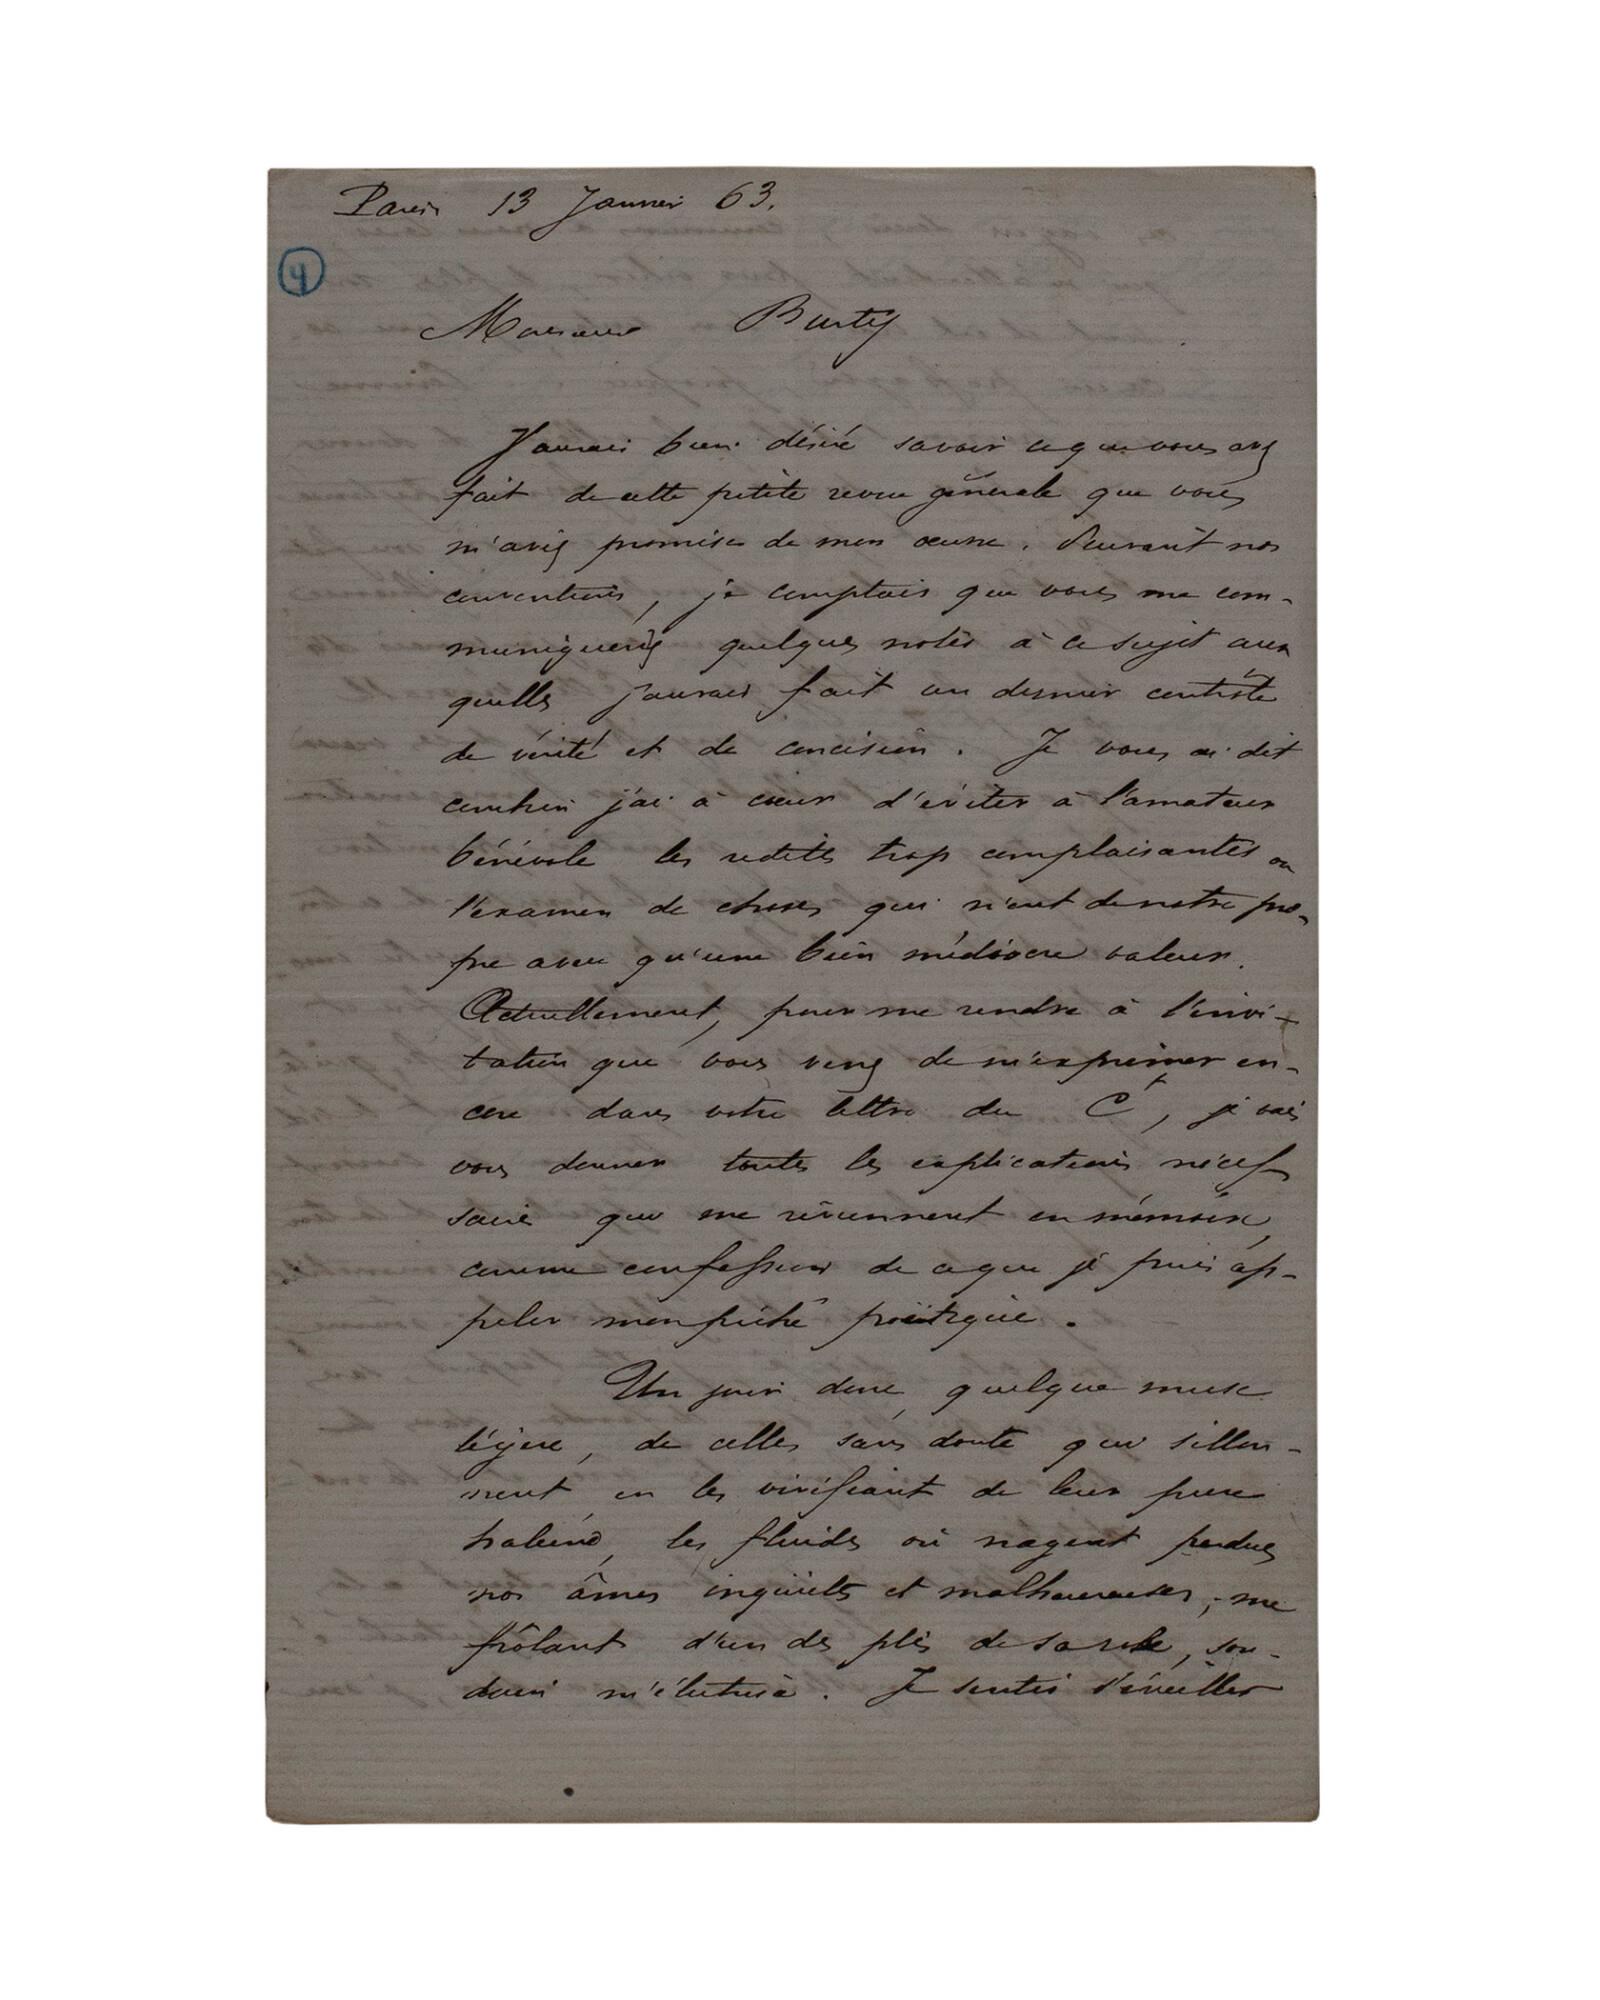 Paris 13 Janvier 63.
4
Monsieur Burty
J'aurais bien désiré savoir ce que vous avez
fait de cette petite revue générale que vous
m'aviez promise de mon œuvre. Suivant nos
conventions, je comptais que vous me com-
muniqueriez quelques notes à ce sujet aux
quelles j'aurais fait un dernier contrôle
de vérité et de concision. Je vous ai dit
combien j'ai à cœur d'éviter à l'amateur
bénévole les redites trop complaisantes ou
l'examen de choses qui n'ont de notre pro-
pre aveu qu'une bien médiocre valeur.
Actuellement, pour me rendre à l'invi-
tation que vous venez de m'exprimer en-
core dans votre lettre du, je vais
vous donner toutes les explications néces
saires qui me reviennent en mémoire,
comme confession de ce que je puis ap-
peler mon péché poëtique.
Un jour donc, quelque muse
légère, de celles sans doute qui sillon-
nent en les vivifiant de leur pure
haleine, les fluides où nagent perdues
nos âmes inquiètes et malheureuses, me
frôlant d'un des plis de sa robe, sou-
dain m'électrisa. Je sentis s'éveiller